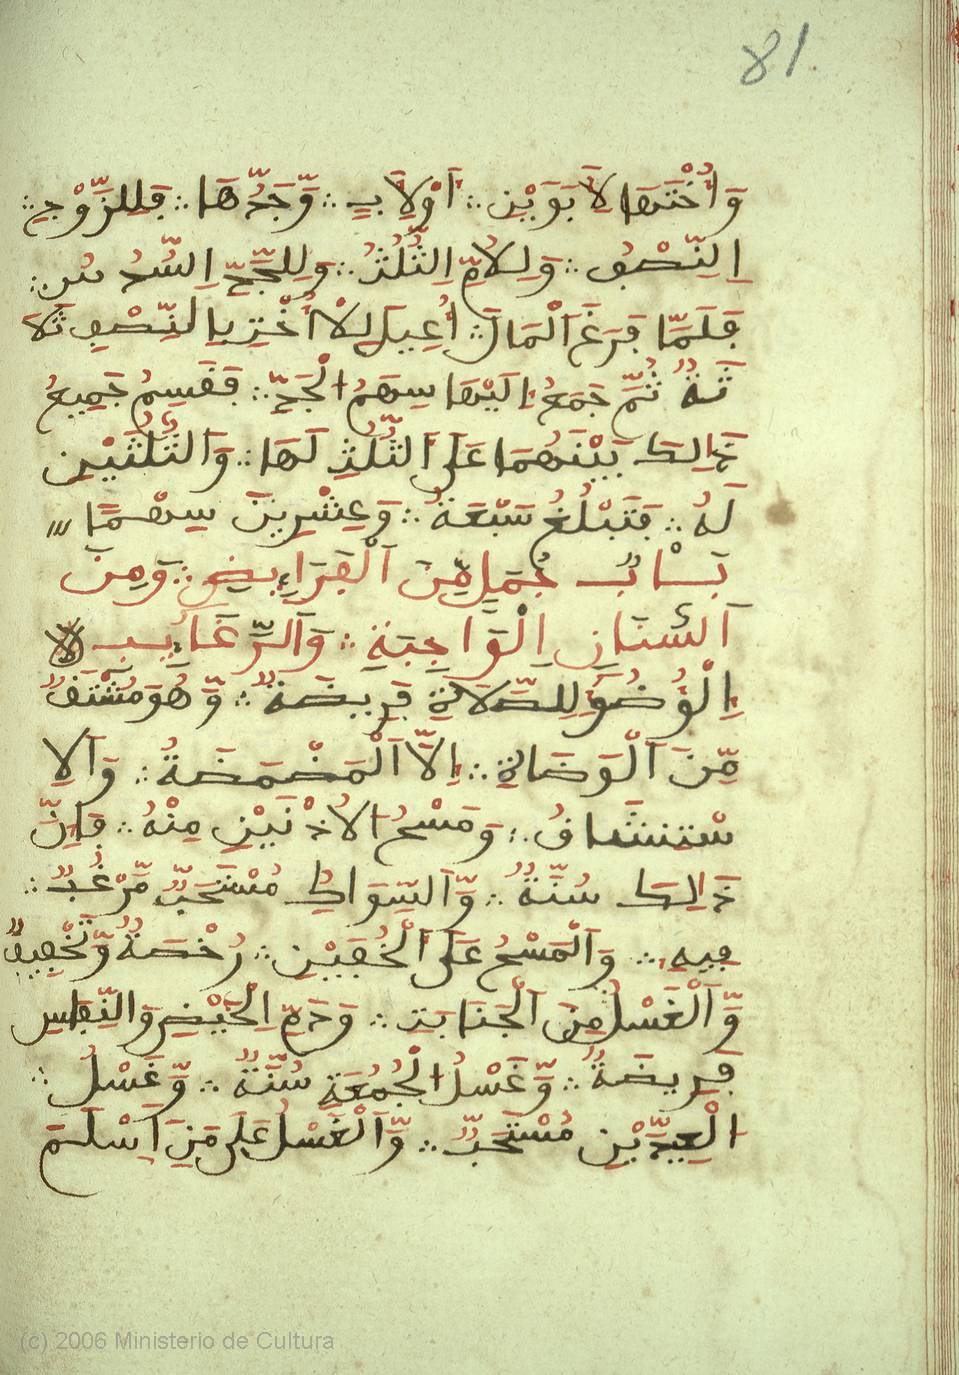 81
وَأُخْتَهَا لِأَبَوَيْنِ ؞ أَوْ لِأَبٍ ؞ وَّجَدِّهَا ؞ فَلِلزَّوْجِ ؞
اِلنِّصْفُ ؞ وَلِلْأُمِّ اِلثُّلُثُ ؞ وَلِلْجَدِّ اِلسُّدُسُ ؞
فَلَمَّا فَرَغَ اَلْمَالُ ؞ أُعِيلَ لِلْأُخْتِ بِالنِّصْفِ ثَلَا
ثَةٌ ثُمَّ جُمِعَ إِلَيْهَا سِهَمُ اَلْجَدِّ ؞ فَقَسِمُ جَمِيعُ
ذَالِكَ بَيْنَهُمَا عَلَى اَلثُّلُثِ لَهَا ؞ وَالثُّلُثَيْنِ
لَهُ ؞ فَتَبْلُغُ سَبْعَةً ؞ وَعِشْرِينَ سِهْمًا
بَابُ جُمَلٍ مِّنَ اَلْفَرَايِضِ ؞ وَمِنَ
اَلسُّنَنِ اِلْوَاجِبَةِ ؞ وَالرَّغَايِبِ
اِلْوُضُوءُ لِلصَّلَاةِ فَرِيضَةٌ ؞ وَّهُوَ مُشْتَقٌّ
مِّنَ اَلْوَضَاةِ ؞ إِلَّا اَلْمَضْمَضَةُ ؞ وَالِا
سْتِنشَاقُ ؞ وَمَسْحُ الْأُذْنَيْنِ مِنْهُ ؞ فَإِنَّ
ذَالِكَ سُنَّةٌ ؞ وَّالسِّوَاكُ مُسْتَحَبٌّ مَّرْغُبٌ ؞
فِيهِ ؞ وَالْمَسْحُ عَلَى اَلْخُفَّيْنِ ؞ رُخْصَةٌ وَّتَخْفِيفٌ
وَّالْغَسْلُ مِنَ اَلْجَنَابَةِ ؞ وَدَمِ اِلْحَيْضِ وَالنِّفَاسِ
فَرِيضَةٌ ؞ وَّغَسْلُ اَلْجُمُعَةِ سُنَّةٌ ؞ وَّغَسْلُ ؞
اَلْعِيدَيْنِ مُسْتَحَبٌّ ؞ وَّالْغَسْلُ عَلَى مَنَ اَسْلَمَ
(c) 2006 Ministerio de Cultura